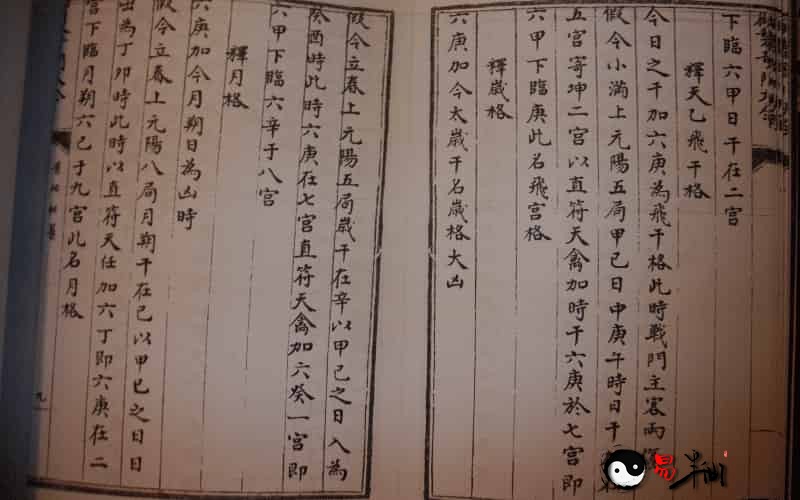 下臨六甲日干在二宮
釋天乙飛干格
今日之干加六庚為飛干格此時戰鬥主客兩
假令小滿上元陽五局甲己日中庚午時日干
五宮寄坤二宮以直符天禽加時干六庚於七宮即
六甲下臨庚此名飛宮格
釋歲格
六庚加今太歲干名歲格大凶
假令立春上元陽五局歲干在辛以甲己之日入為
癸酉時此時六庚在七宮直符天禽加六癸一宮即
六甲下臨六辛于八宮
釋月格
六庚加今月朔日為凶時
假令立春上元陽八局月朔干在己以甲己之日日
出為丁卯時此時以直符天任加六丁即六庚在二
宮下臨月朔六己于九宮此名月格
九
易